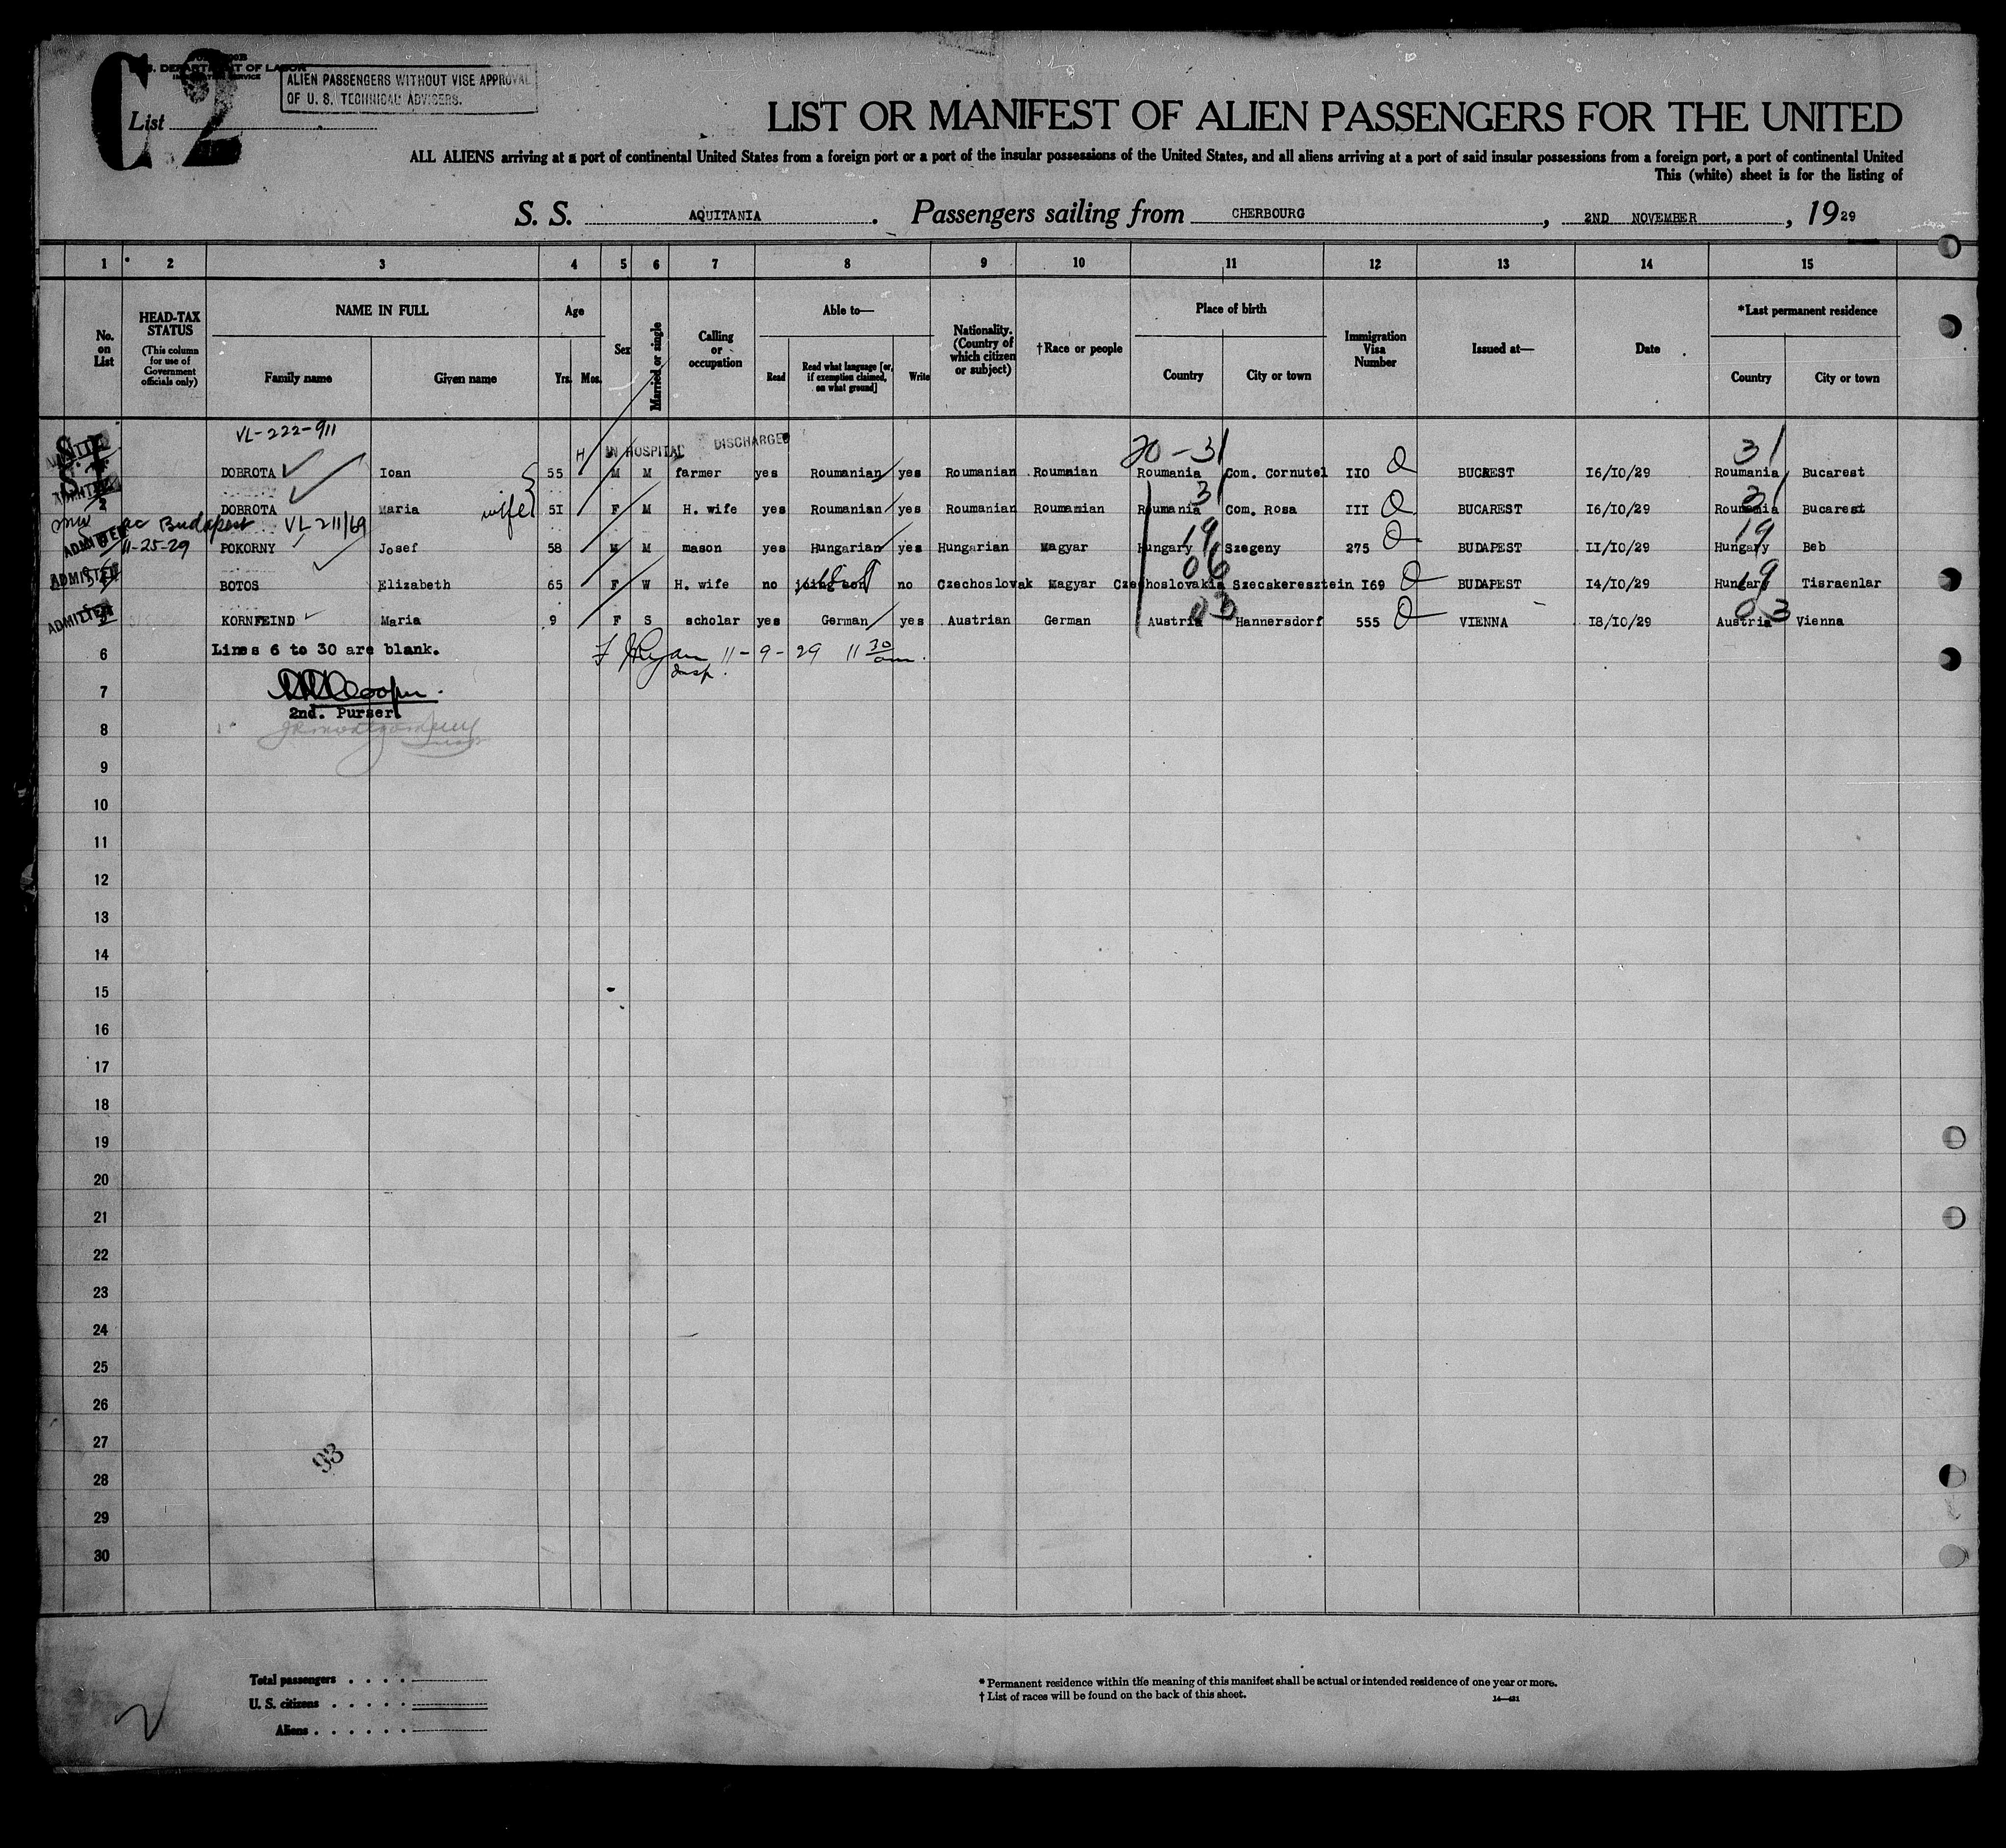 C2
U.S. DEPARTMENT OF LABOR
ALIEN PASSENGERS WITHOUT VISE APPROVAL
OF U. S. TECHNICAL ADVISERS.
List
LIST OR MANIFEST OF ALIEN PASSENGERS FOR THE UNITED
ALL ALIENS arriving at a port of continental United States from a foreign port or a port of the insular possessions of the United States, and all aliens arriving at a port of said insular possessions from a foreign port, a port of continental United
This (white) sheet is for the listing of
S. S. AQUITANIA. Passengers sailing from CHERBOURG, 2ND NOVEMBER, 1929
1 2 3 4 5 6 7 8 9 10 11 12 13 14 15
No. on List
HEAD-TAX STATUS
(This column for use of Government officials only)
NAME IN FULL
Family name Given name
Age
Yrs. Mos.
Sex
Married or single
Calling or occupation
Able to—
Read
Read what language [or, if exemption claimed, on what ground]
Write
Nationality. (Country of which citizen or subject)
†Race or people
Place of birth
Country City or town
Immigration Visa Number
Issued at—
Date
*Last permanent residence
Country City or town
VL-222-911
H IN HOSPITAL DISCHARGED 20-31 31
DOBROTA Ioan 55 M M farmer yes Roumanian yes Roumanian Roumaian Roumania Com. Cornutel IIO BUCREST I6/IO/29 Roumania Bucarest
ADMITTED 2 DOBROTA Maria wife 5I F M H. wife yes Roumanian yes Roumanian Roumanian Roumania 31 Com. Rosa III BUCAREST I6/IO/29 Roumania 31 Bucarest
Budapest VL 211/69
ADMITTED 11-25-29 POKORNY Josef 58 M M mason yes Hungarian yes Hungarian Magyar Hungary 19 Szegeny 275 BUDAPEST II/IO/29 Hungary 19 Beb
ADMITTED BOTOS Elizabeth 65 F W H. wife no joing son no Czechoslovak Magyar Czechoslovakia 06 Szecskeresztein I69 BUDAPEST I4/IO/29 Hungary 19 Tisraenlar
ADMITTED KORNFEIND Maria 9 F S scholar yes German yes Austrian German Austria 03 Hannersdorf 555 VIENNA I8/IO/29 Austria 03 Vienna
6 Lines 6 to 30 are blank. 11-9-29 11 30 am.
Insp.
7
2nd. Purser
8
9
10
11
12
13
14
15
16
17
18
19
20
21
22
23
24
25
26
27
93
28
29
30
Total passengers
U. S. citizens
Aliens
* Permanent residence within the meaning of this manifest shall be actual or intended residence of one year or more.
† List of races will be found on the back of this sheet.
14—421
2